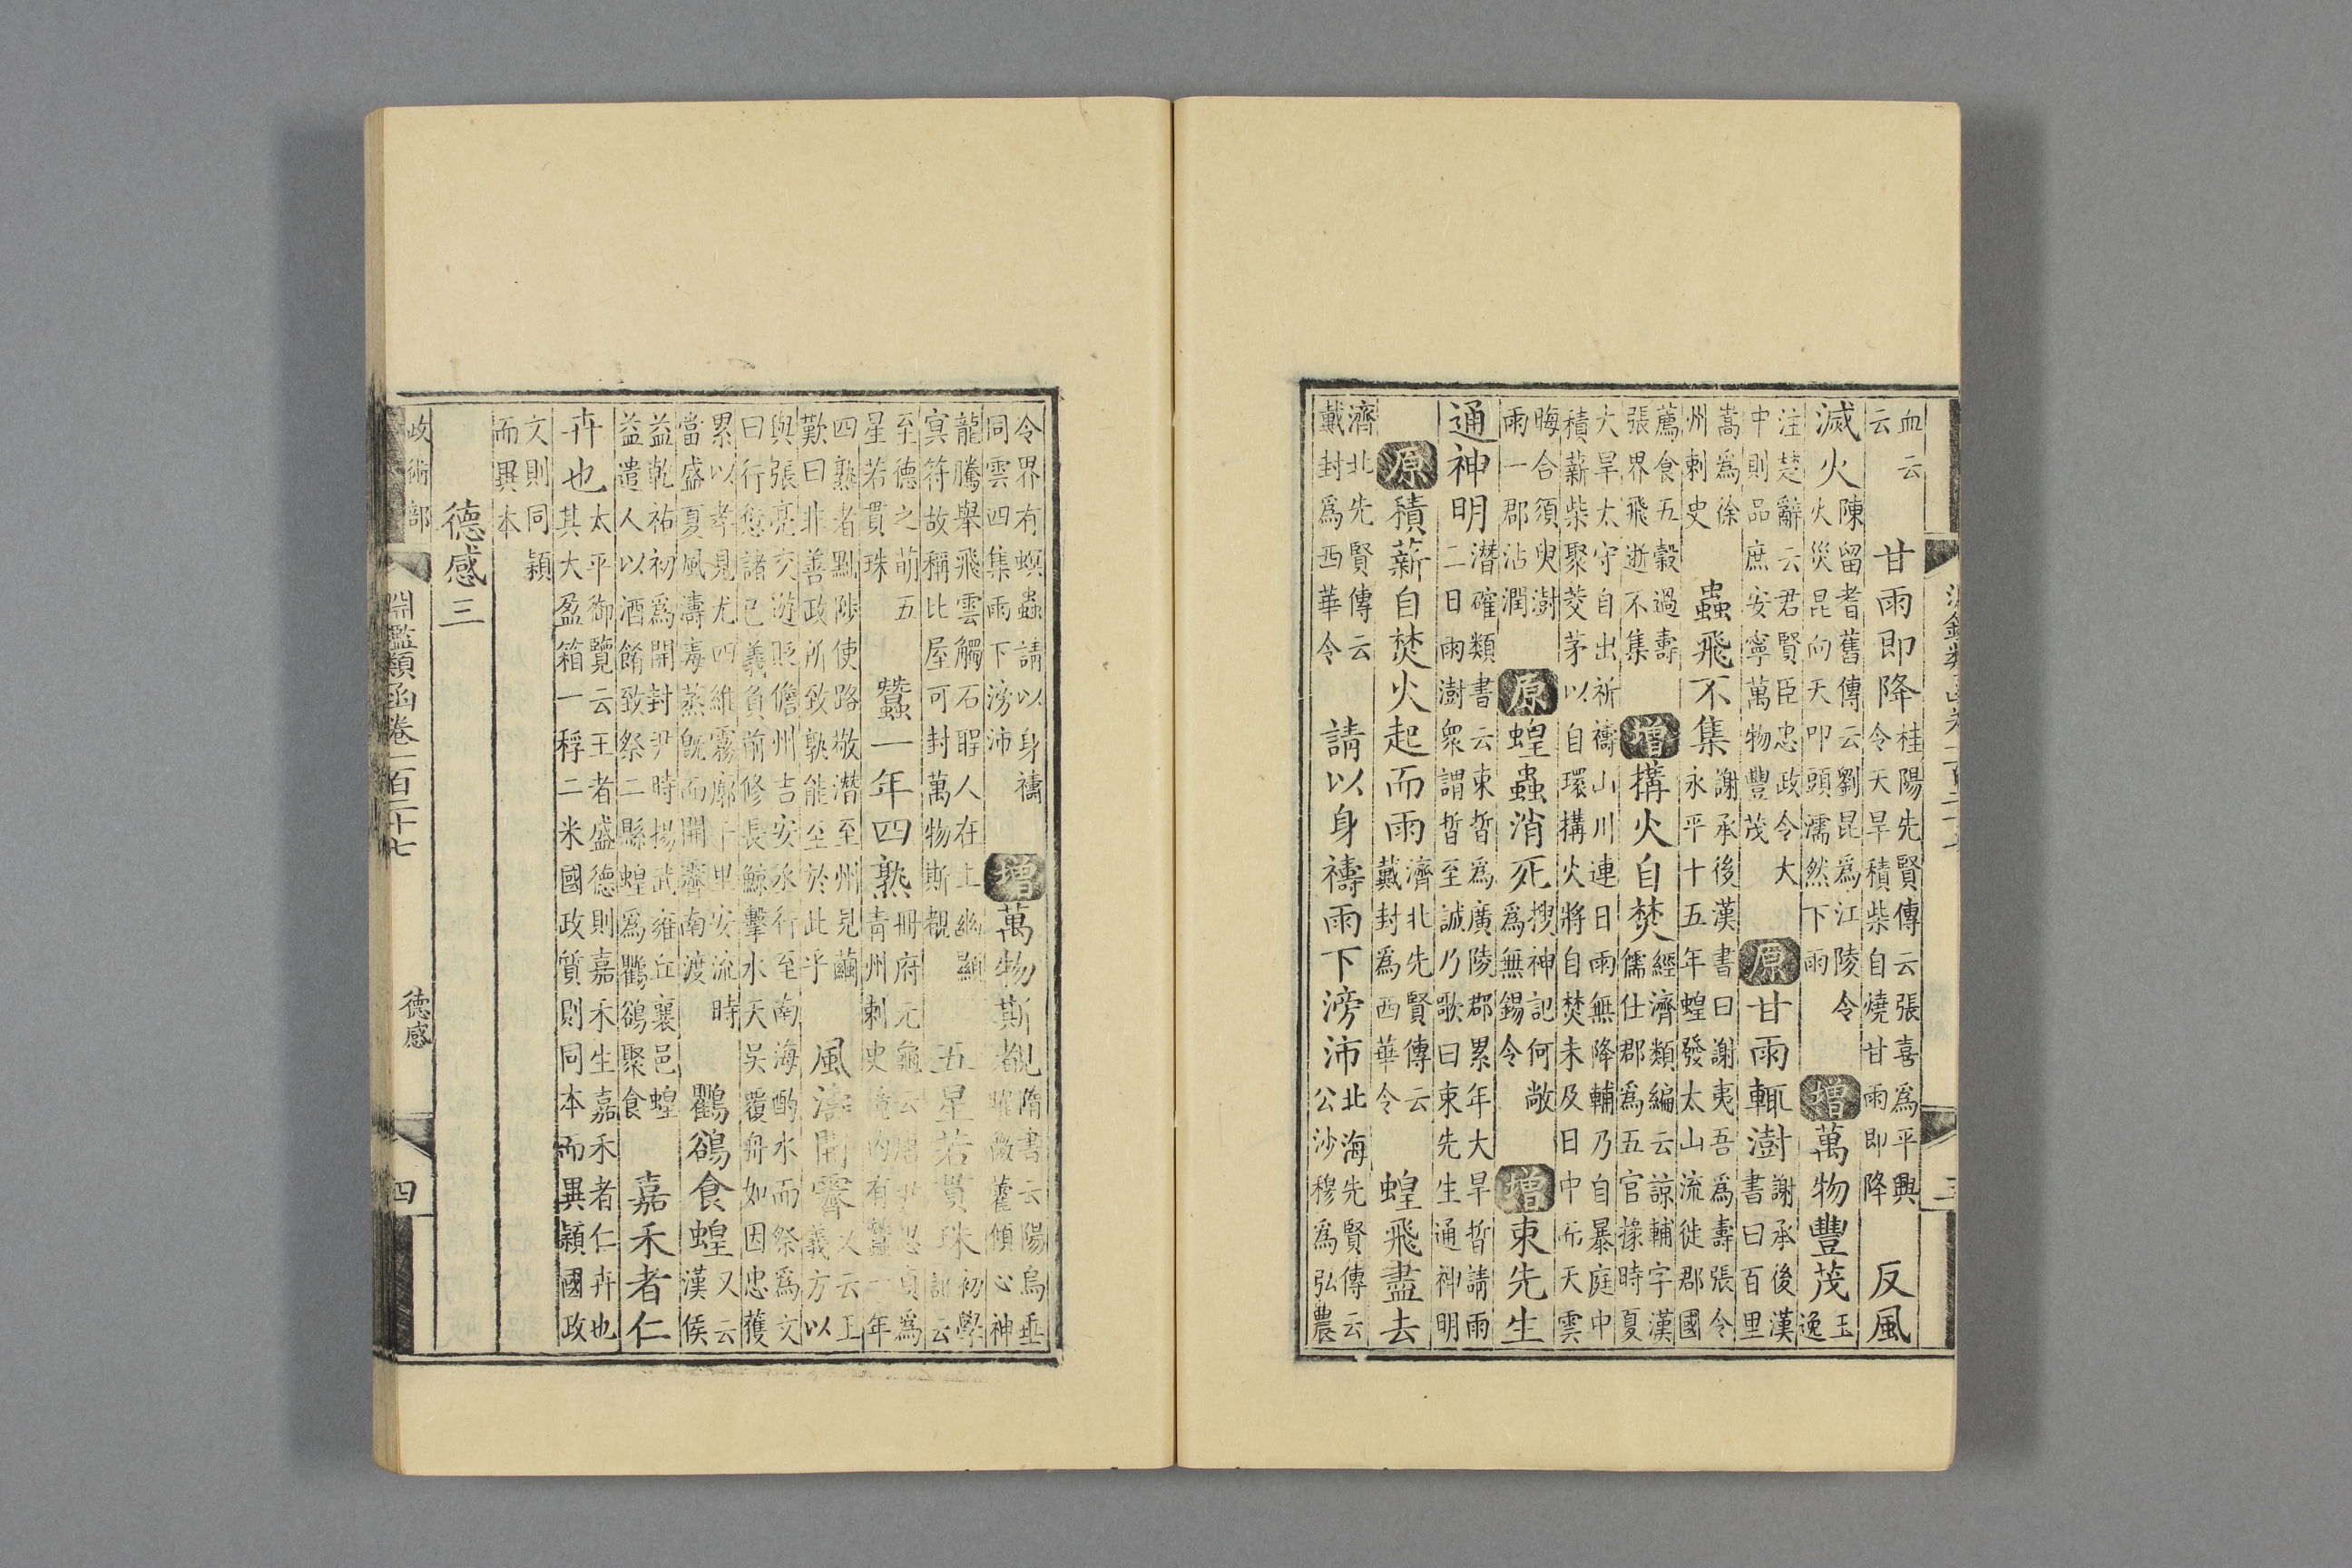 血云云甘雨即降桂陽先賢傳云張喜爲平興令天旱積柴自燒甘雨即降反風
滅火陳留耆舊傳云劉昆爲江陵令火災昆向天叩頭濡然下雨增萬物豐茂王逸
注楚辭云君賢臣忠政令大中則品庶安寧萬物豐茂原甘雨輒澍謝承後漢書曰百里
嵩爲徐州刺史蟲飛不集謝承後漢書曰謝夷吾爲壽張令永平十五年蝗發太山流徙郡國
薦食五穀過壽張界飛逝不集增構火自焚經濟類編云諒輔字漢儒仕郡爲五官掾時夏
大旱太守自出祈禱山川連日雨無降輔乃自暴庭中積薪柴聚茭茅以自環搆火將自焚未及日中而天雲
晦合須臾澍雨一郡沾潤原蝗蟲消死搜神記何敞爲無錫令增束先生
通神明潛確類書云束晳爲廣陵郡累年大旱晳請雨二日雨澍衆謂晳至誠乃歌曰束先生通神明
原積薪自焚火起而雨濟北先賢傳云戴封爲西華令蝗飛盡去
濟北先賢傳云戴封爲西華令請以身禱雨下滂沛北海先賢傳云公沙穆爲弘農
令界有螟蟲請以身禱同雲四集雨下滂沛增萬物斯覩隋書云陽烏垂耀薇藿傾心神
龍騰舉飛雲觸石聖人在上幽顯冥符故稱比屋可封萬物斯覩五星若貫珠初學記云
至德之萌五星若貫珠蠶一年四熟冊府元龜云唐尹思貞爲青州刺史境内有蠶一年
四熟者黜陟使路敬潛至州見繭歎曰非善政所致孰能至於此乎風濤開霽又云王義方以
與張亮交遊貶儋州吉安丞行至南海酌水而祭爲文曰行愆諸已義負前修長鯨擊水天吴覆舟如因忠獲
累以孝見尤四維霧廓千里安流時當盛夏風濤毒蒸旣而開霽南渡鸜鵒食蝗又云漢侯
益乾祐初爲開封尹時揚武雍丘襄邑蝗益遣人以酒餚致祭二縣蝗爲鸜鵒聚食嘉禾者仁
卉也太平御覽云王者盛德則嘉禾生嘉禾者仁卉也其大盈箱一稃二米國政質則同本而異穎國政
文則同穎而異本
德感三
政術部 淵鑑類函卷一百二十七 德感 四